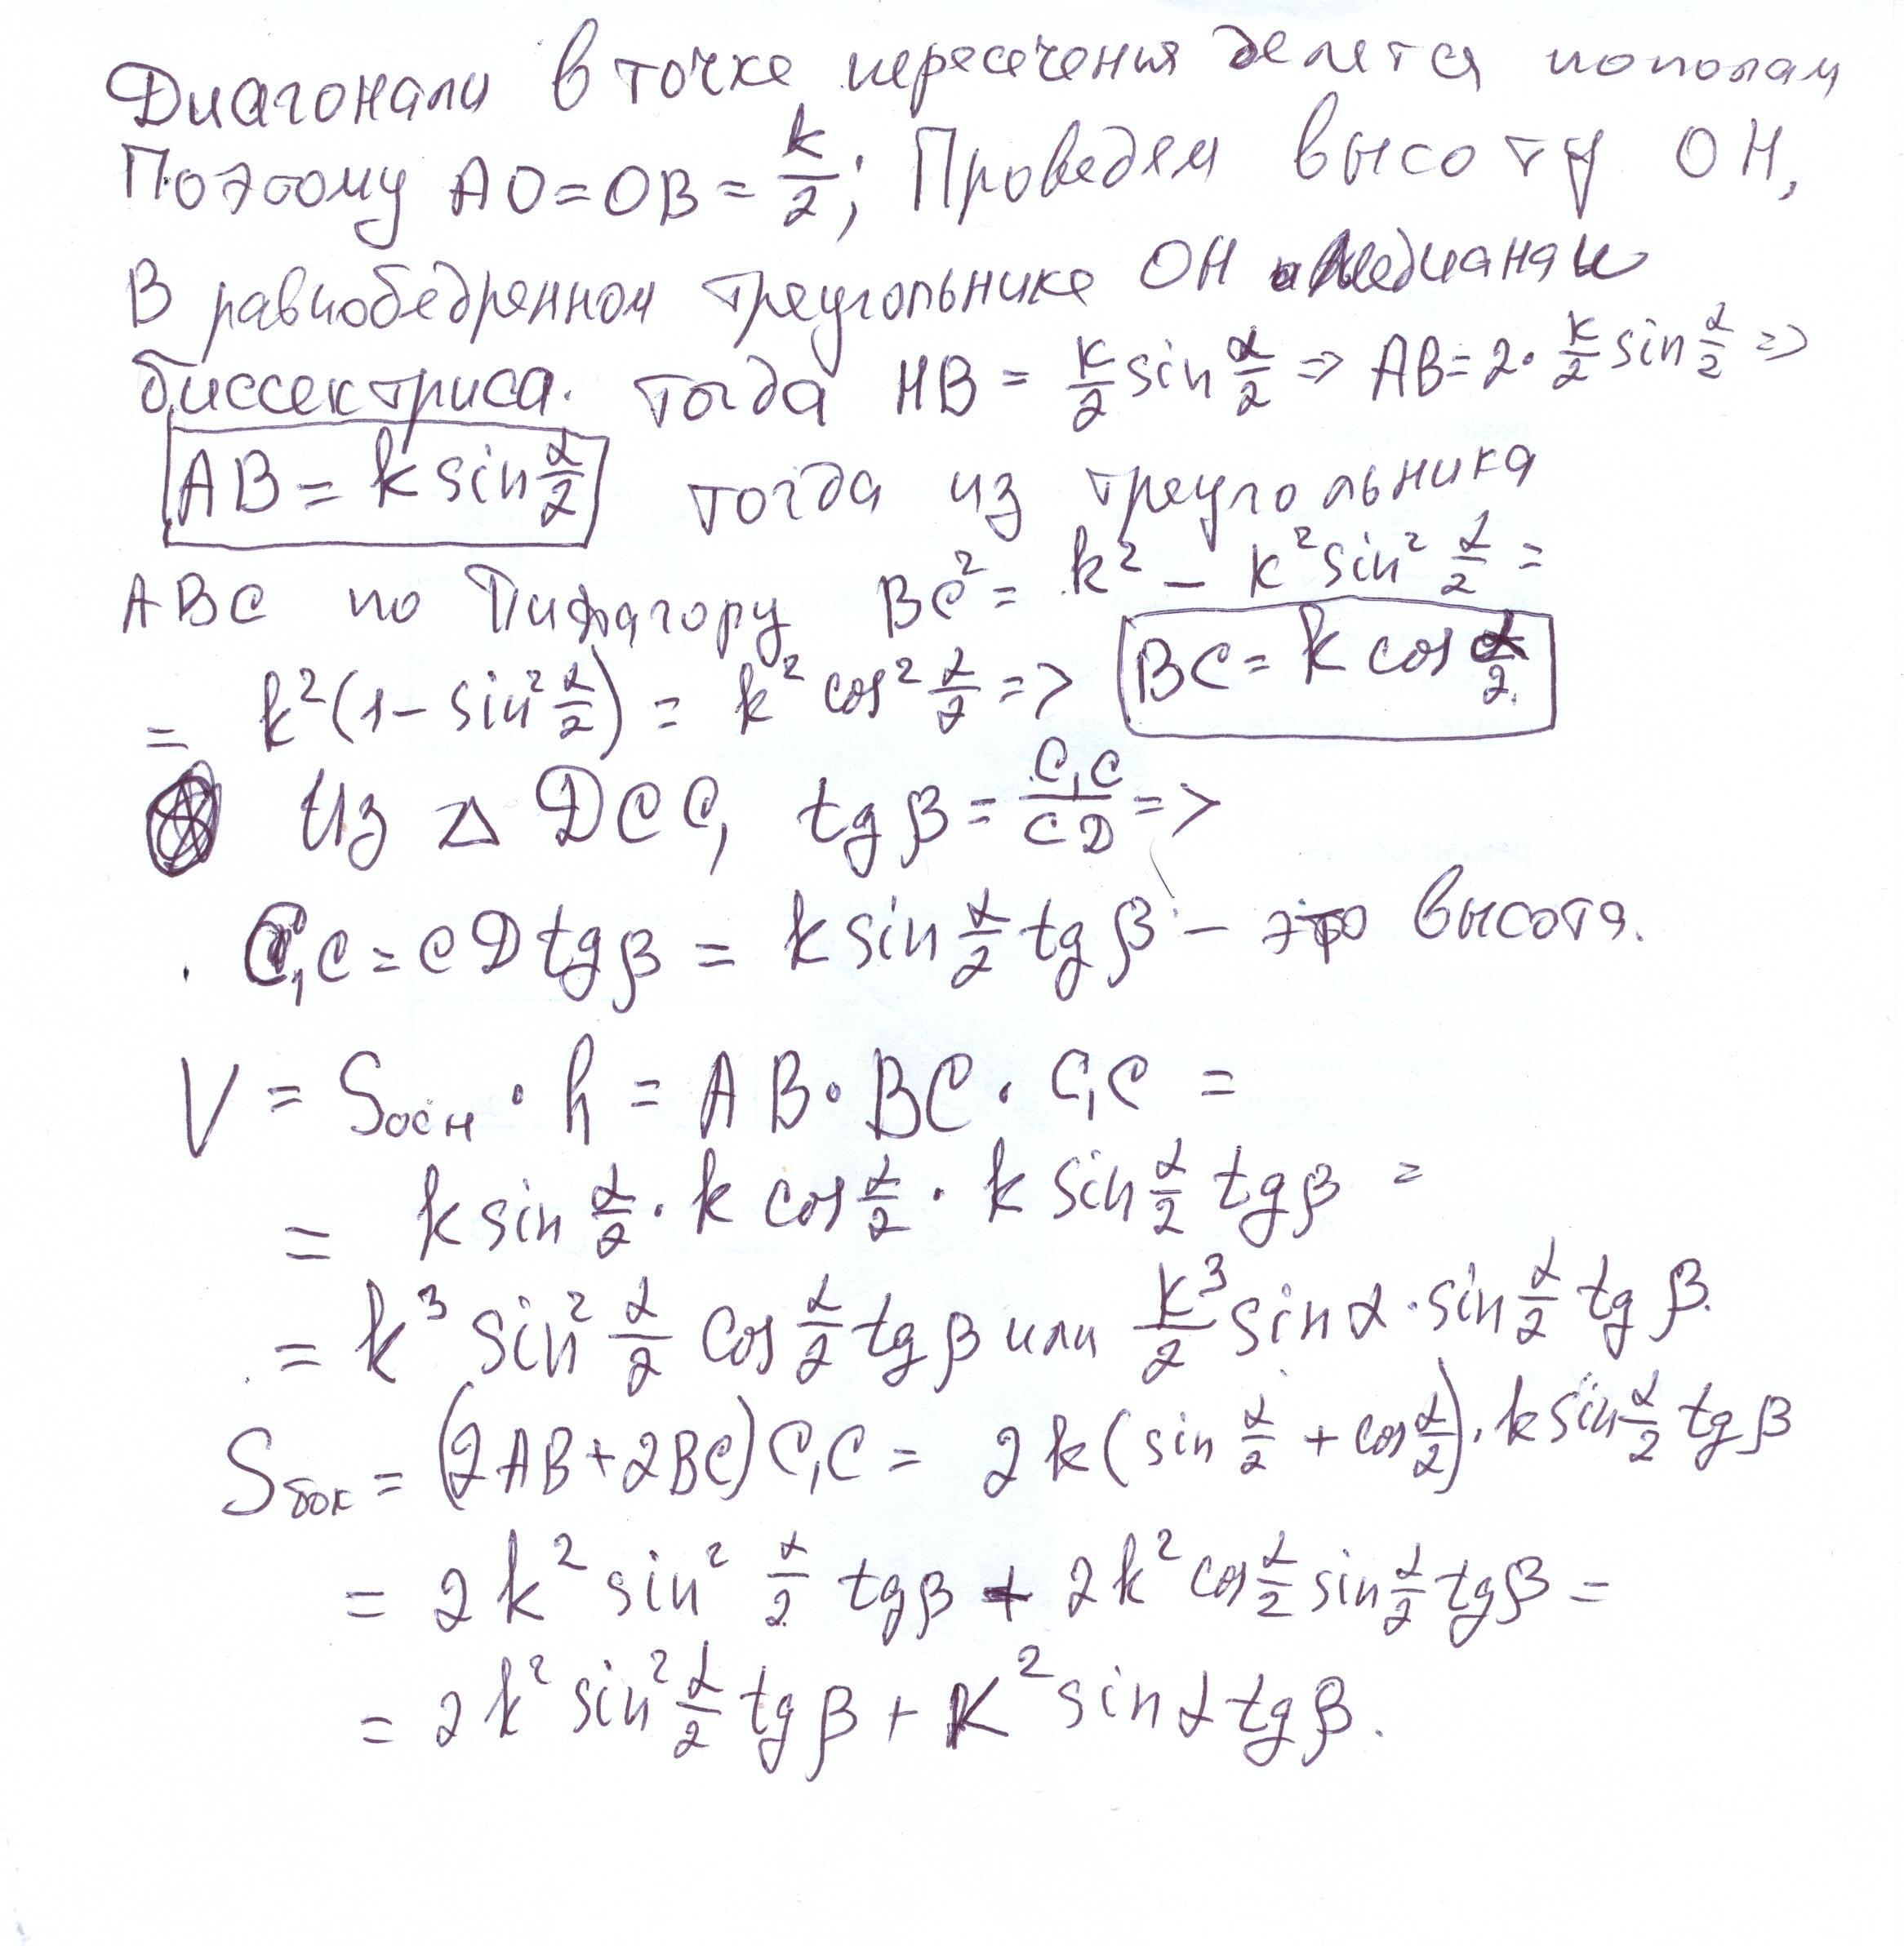 Диагонали в точке пересечения делятся пополам
Поэтому AO = OB = k/2; Проведем высоту OH,
В равнобедренном треугольнике OH и медиана и
биссектриса. Тогда HB = k/2 sin α/2 => AB = 2 · k/2 sin α/2 =>
AB = k sin α/2 тогда из треугольника
ABC по Пифагору BC² = k² - k² sin² α/2 =
= k²(1 - sin² α/2) = k² cos² α/2 => BC = k cos α/2
Из △ DCC₁ tg β = C₁C/CD =>
C₁C = CD tg β = k sin α/2 tg β - это высота.
V = Sосн · h = AB · BC · C₁C =
= k sin α/2 · k cos α/2 · k sin α/2 tg β =
= k³ sin² α/2 cos α/2 tg β или k³/2 sin α · sin α/2 tg β.
Sбок = (2AB + 2BC) C₁C = 2k (sin α/2 + cos α/2) · k sin α/2 tg β
= 2k² sin² α/2 tg β + 2k² cos α/2 sin α/2 tg β =
= 2k² sin² α/2 tg β + k² sin α tg β.